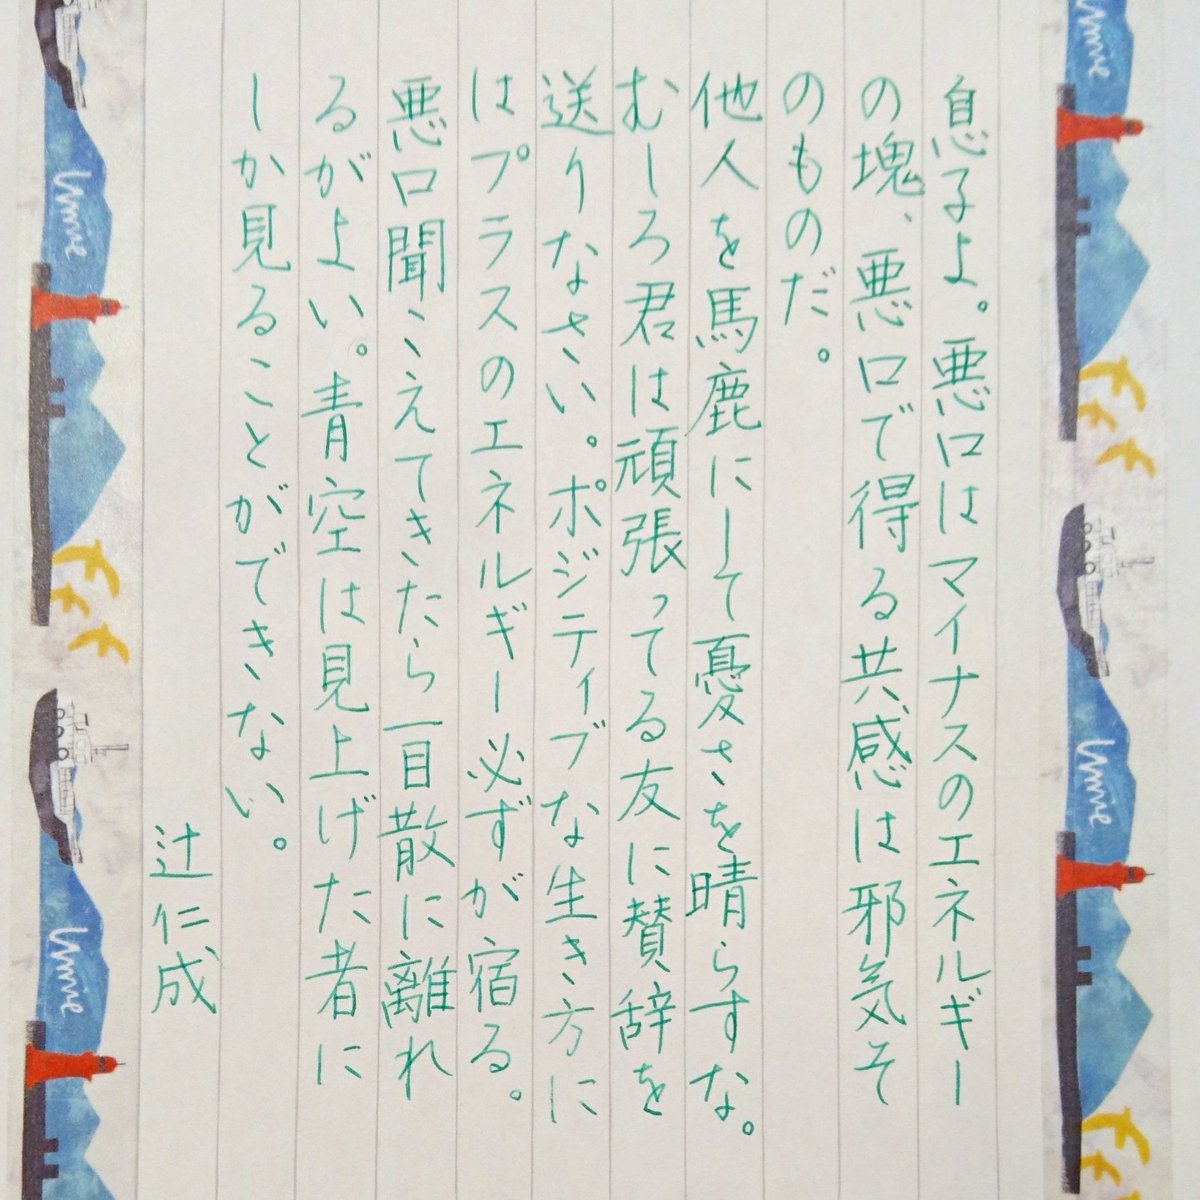 息子よ。悪口はマイナスのエネルギー
の塊、悪口で得る共感は邪気そ
のものだ。
他人を馬鹿にして憂さを晴らすな。
むしろ君は頑張ってる友に賛辞を
送りなさい。ポジティブな生き方に
はプラスのエネルギー必ずが宿る。
悪口聞こえてきたら一目散に離れ
るがよい。青空は見上げた者に
しか見ることができない。
辻仁成
umie
umie
umie
umie